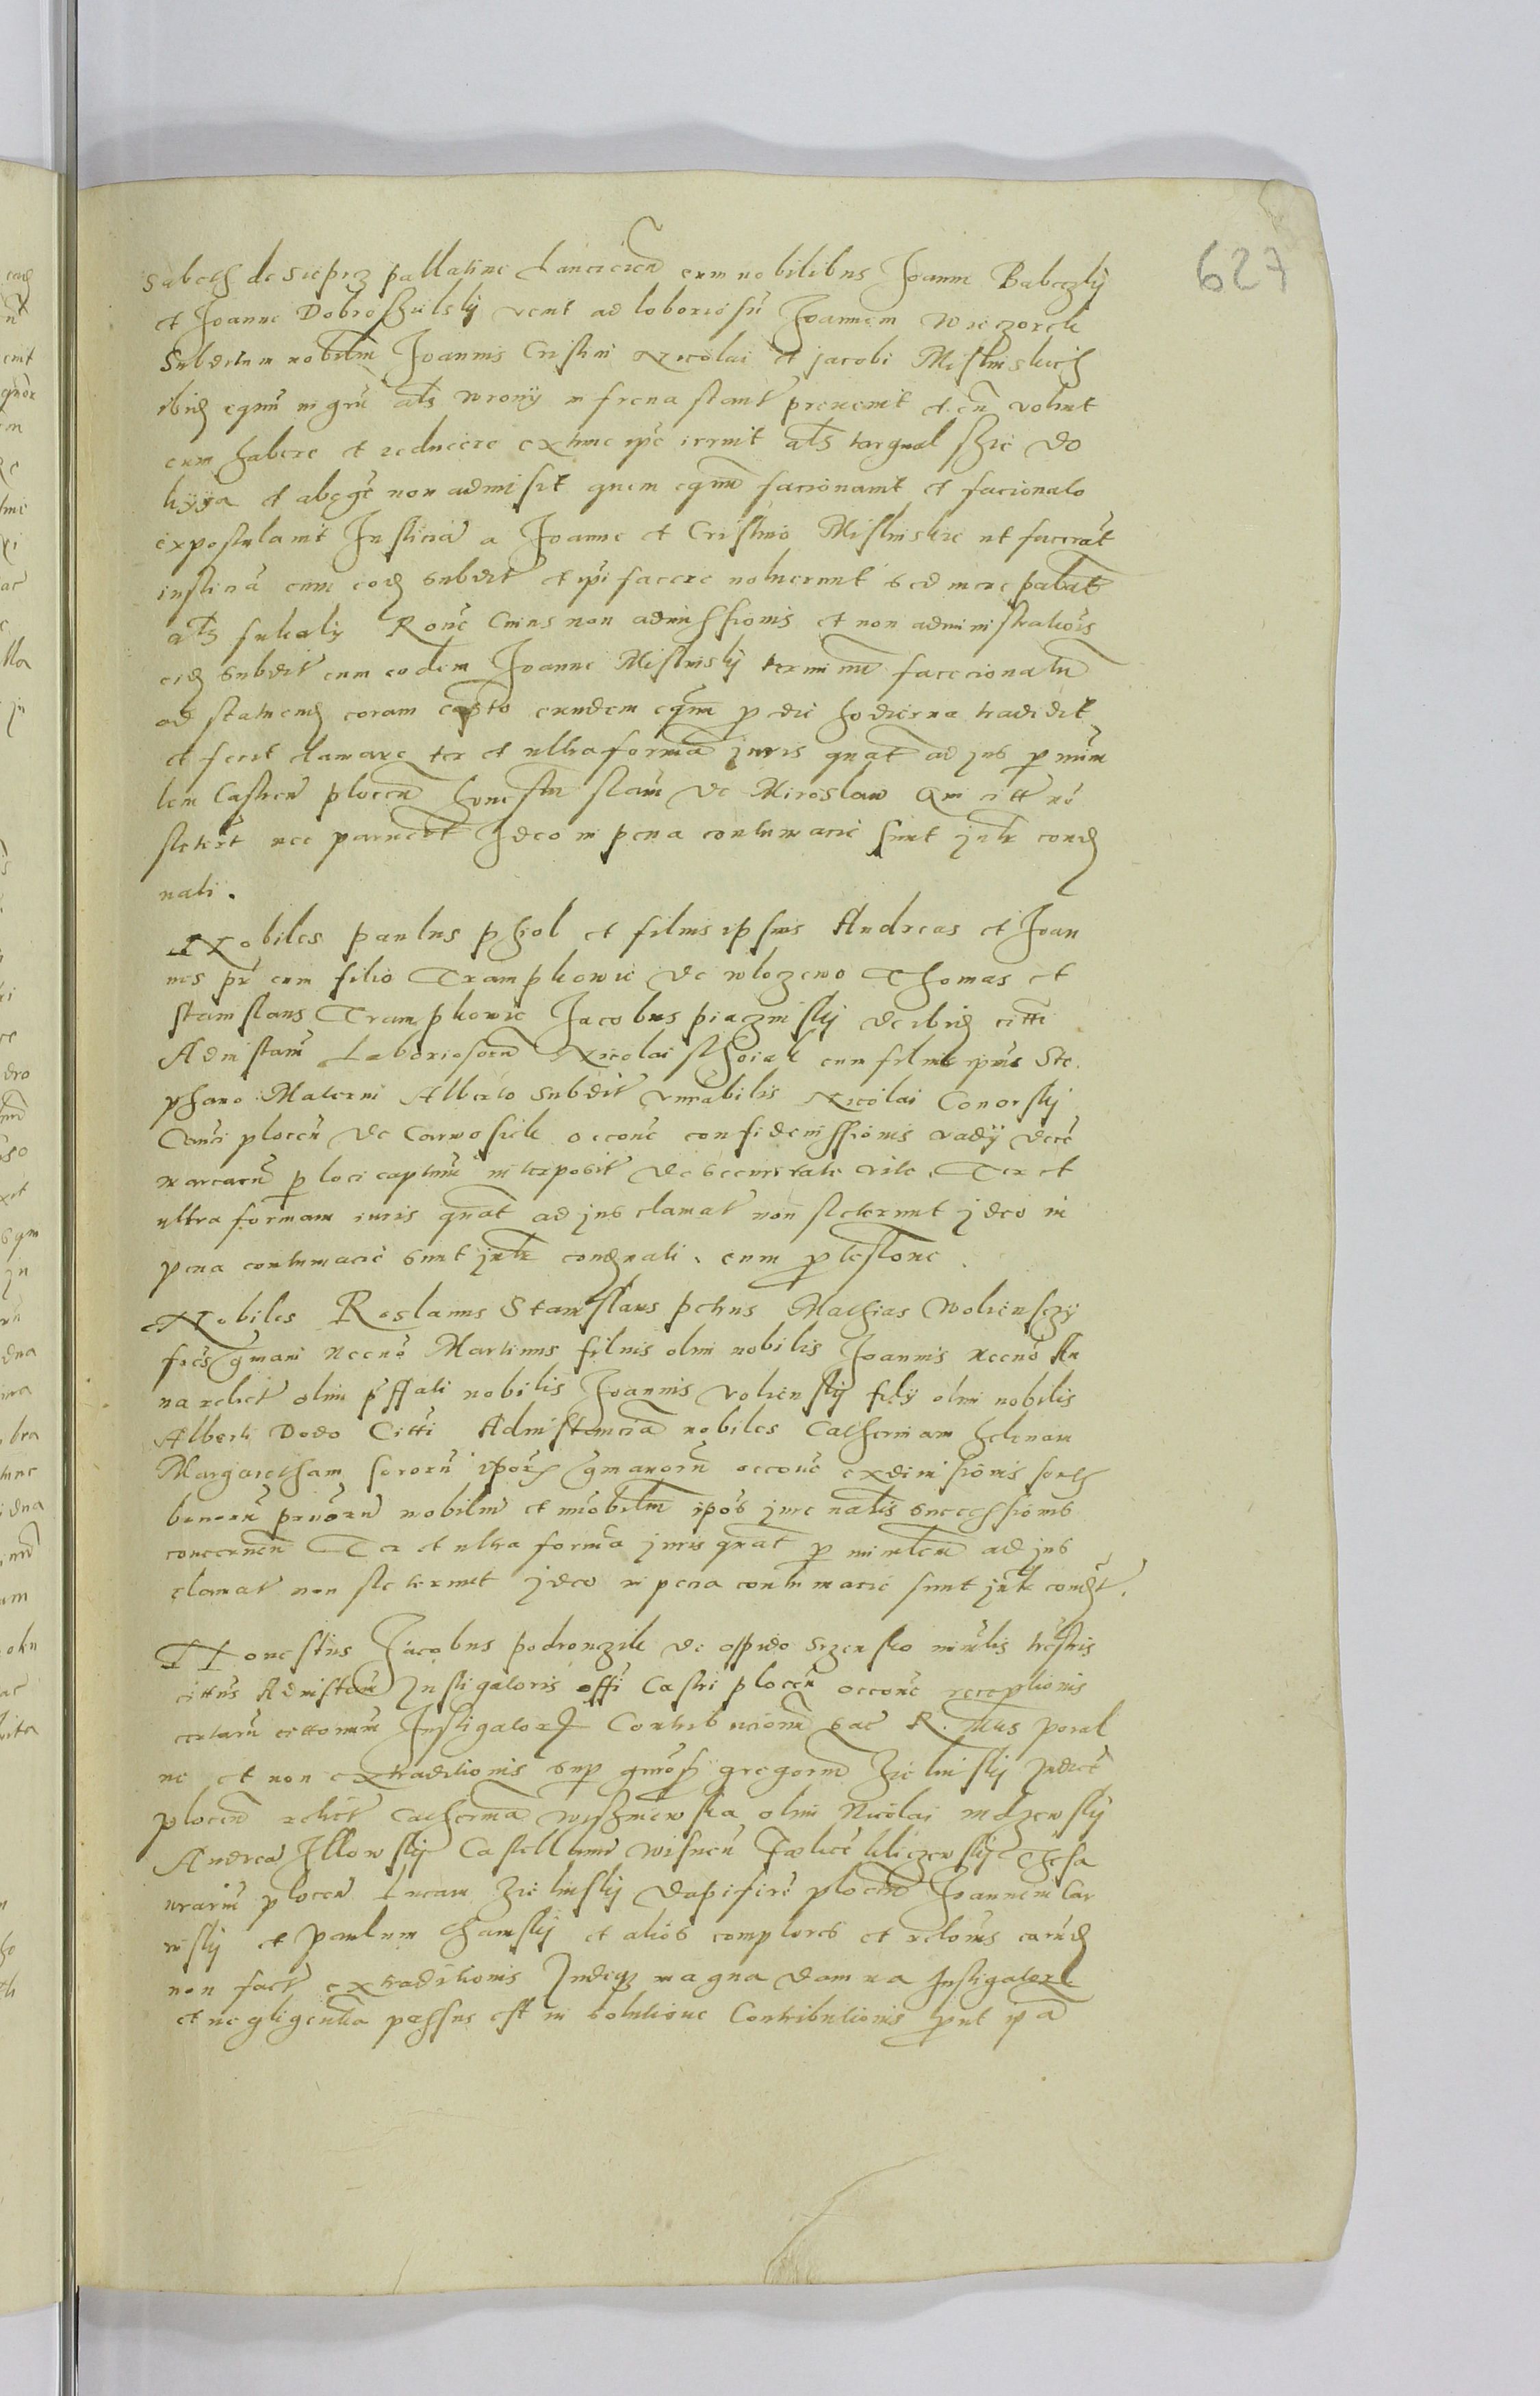 627
Sabeth de Sieprz pallatine Lancicien cum nobilibus Joanne Babeczky
et Joanne Dobroschielsky venit ad laboriosu Joannem Wieczorek
Subditum nobilm Joannis Cristini Nicolai et jacobi Mislinskich
ibid equu nigru als wrony in frena stant prevenit et eu voluit
cum habere et reducere extunc ipe irruit als targnal schie do
kyya et ab eqo non admisit quem equu facionavit et facionato
expostulavit Justicia a Joanne et Cristino Mislinskie ut facerat
insticia cum eod subdit et ipi facere noluerunt sed mere
als Rone Cuius non admissionis et non administrationis
eid subdit cum eodem Joanne Mislinsky terminu faccionatu
ad statuend coram casto eundem equm p die hodierna tradidit
et fecit clamare ter et ultra forma juris quat ad jus p mini
lem Castren plocen honestu stani de Miroslaw Qui citt no
stetert nec paruert Ideo in pena contumacie sunt jnte cond
nati.
Nobiles paulus pschol et filius ipsius Andreas et Joan
nes pr cum filio Trampkowie de wloczewo Thomas et
stanislaus Trampkowie Jacobus piaczinsky de ibid citti
Ad instani Laboriosoru Nicolai cum filius ipius Ste
phano Materni Alberto subdit venerabilis Nicolai Conorsky
Cano plocen de Carwosiek occone confideiussionis vadij dece
marcaru p loci capitnu interposit de securitate vite. Ter et
ultra formam iuris quat ad jus clamat non steterunt jdeo in
pena contumacie sunt jnte condnati. cum ptestone.
Nobiles Roslanus Stanislaus petrus Mathias woliensczy
fres gmani Necno Martinus filius olim nobilis Joannis necno An
na relict olim pffati nobilis Joannis voliensky filij olim nobilis
Alberti Dodo Citti Ad instancia nobiles Catherinam helenam
Margaretham sororu ipor gmanoru occone exdivisionis sortis
bonoru mobiliu et imobiliu ipos jure natlis successionis
concernen Ter et ultra forma juris quat p minlem ad jus
clamat non steterunt jdeo in pena contumacie sunt jnte condt.
Honestus Jacobus podronczik de oppido Srzensko niulis trestris
cittus Ad instan Instigatoris offi Castri plocen occone receptionis
certaru cittonum Instigatorl Contribucionu sac R. Mtis poral
ne et non extraditionis sup gnosu gregoriu Zielinsky Judice
plocen relict Catherina wyschniewska olim Nicolai mdzewsky
Andrea Illowsky Castellanu wisnen Felice klicziewsky thesa
urariu plocen Lucam Zielinsky dapiferu plocen Joannem Car
nisky et paulum Chamsky et alios complores et reloius earud
non fact extraditionis Indeq magna damna Instigatorl
et negligentia passus est in solutione Contributionis prut ipa